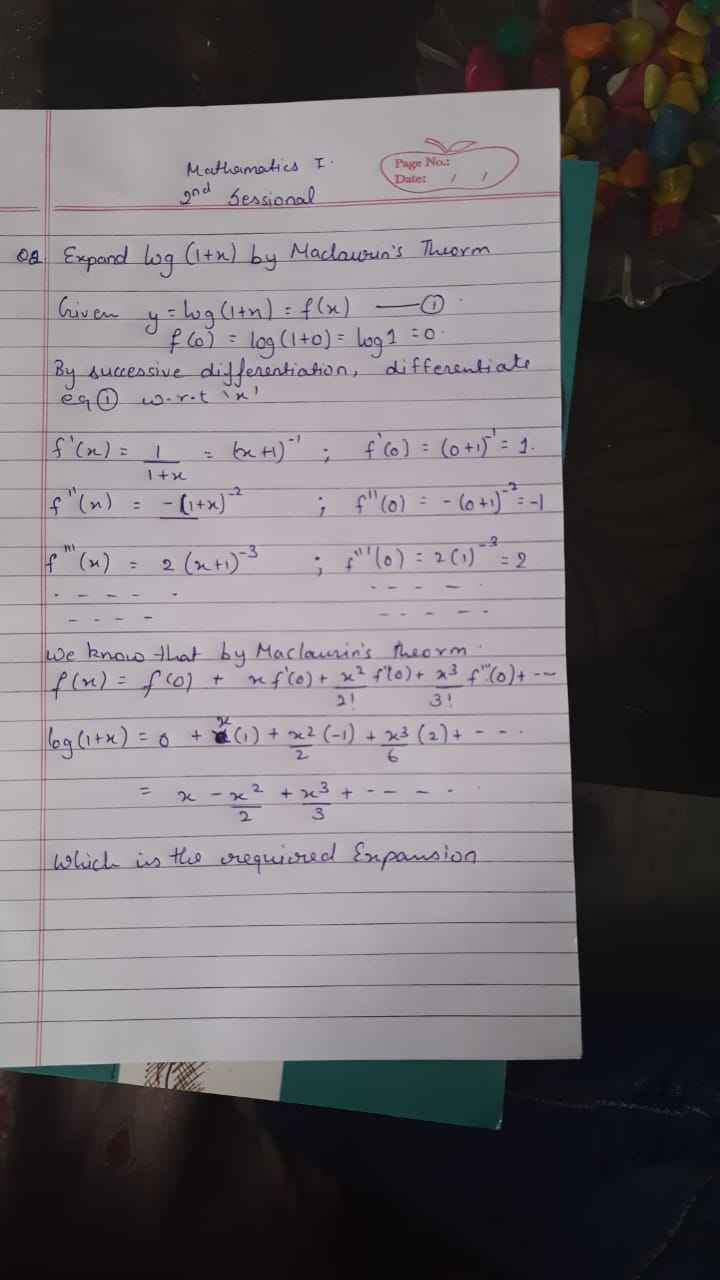 Mathamatics I.
2nd Sessional
Page No.:
Date: / /
Q2. Expand log (1+x) by Maclaurin's Theorm
Given y = log(1+x) = f(x) —①
f(0) = log(1+0) = log1 = 0.
By successive differentiation, differentiate
eq ① w.r.t 'x'
f'(x) = 1/(1+x) = (x+1)⁻¹ ; f'(0) = (0+1)⁻¹ = 1.
f''(x) = -(1+x)⁻² ; f''(0) = -(0+1)⁻² = -1
f'''(x) = 2(x+1)⁻³ ; f'''(0) = 2(1)⁻³ = 2
- - - - - - - - -
- - - - - - - -
We know that by Maclaurin's theorm.
f(x) = f(0) + x f'(0) + x²/2! f''(0) + x³/3! f'''(0) + ---
log(1+x) = 0 + x(1) + x²/2 (-1) + x³/6 (2) + - - -.
= x - x²/2 + x³/3 + - - - - .
Which is the requiored Expansion